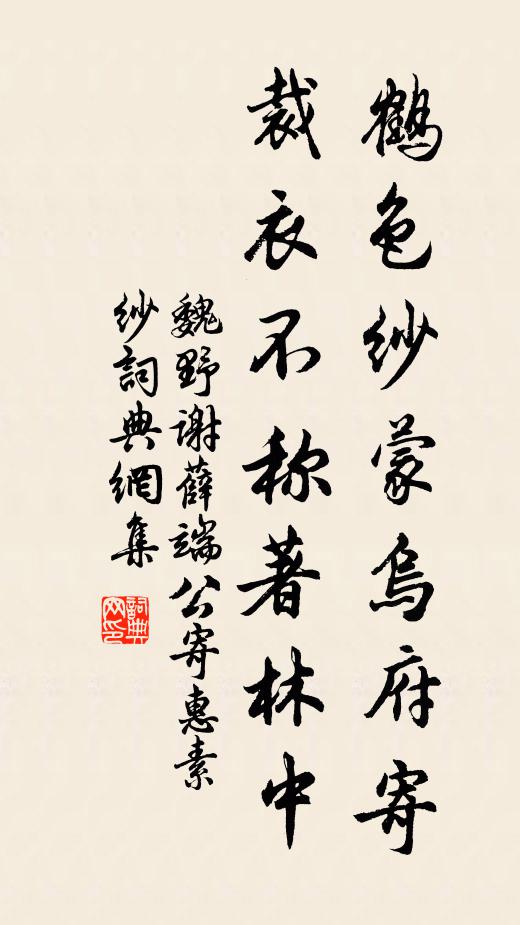 鶴色紗蒙烏府寄
裁衣不称著林中
魏野谢薛端公寄惠素
纱詞典網集
詞典网印